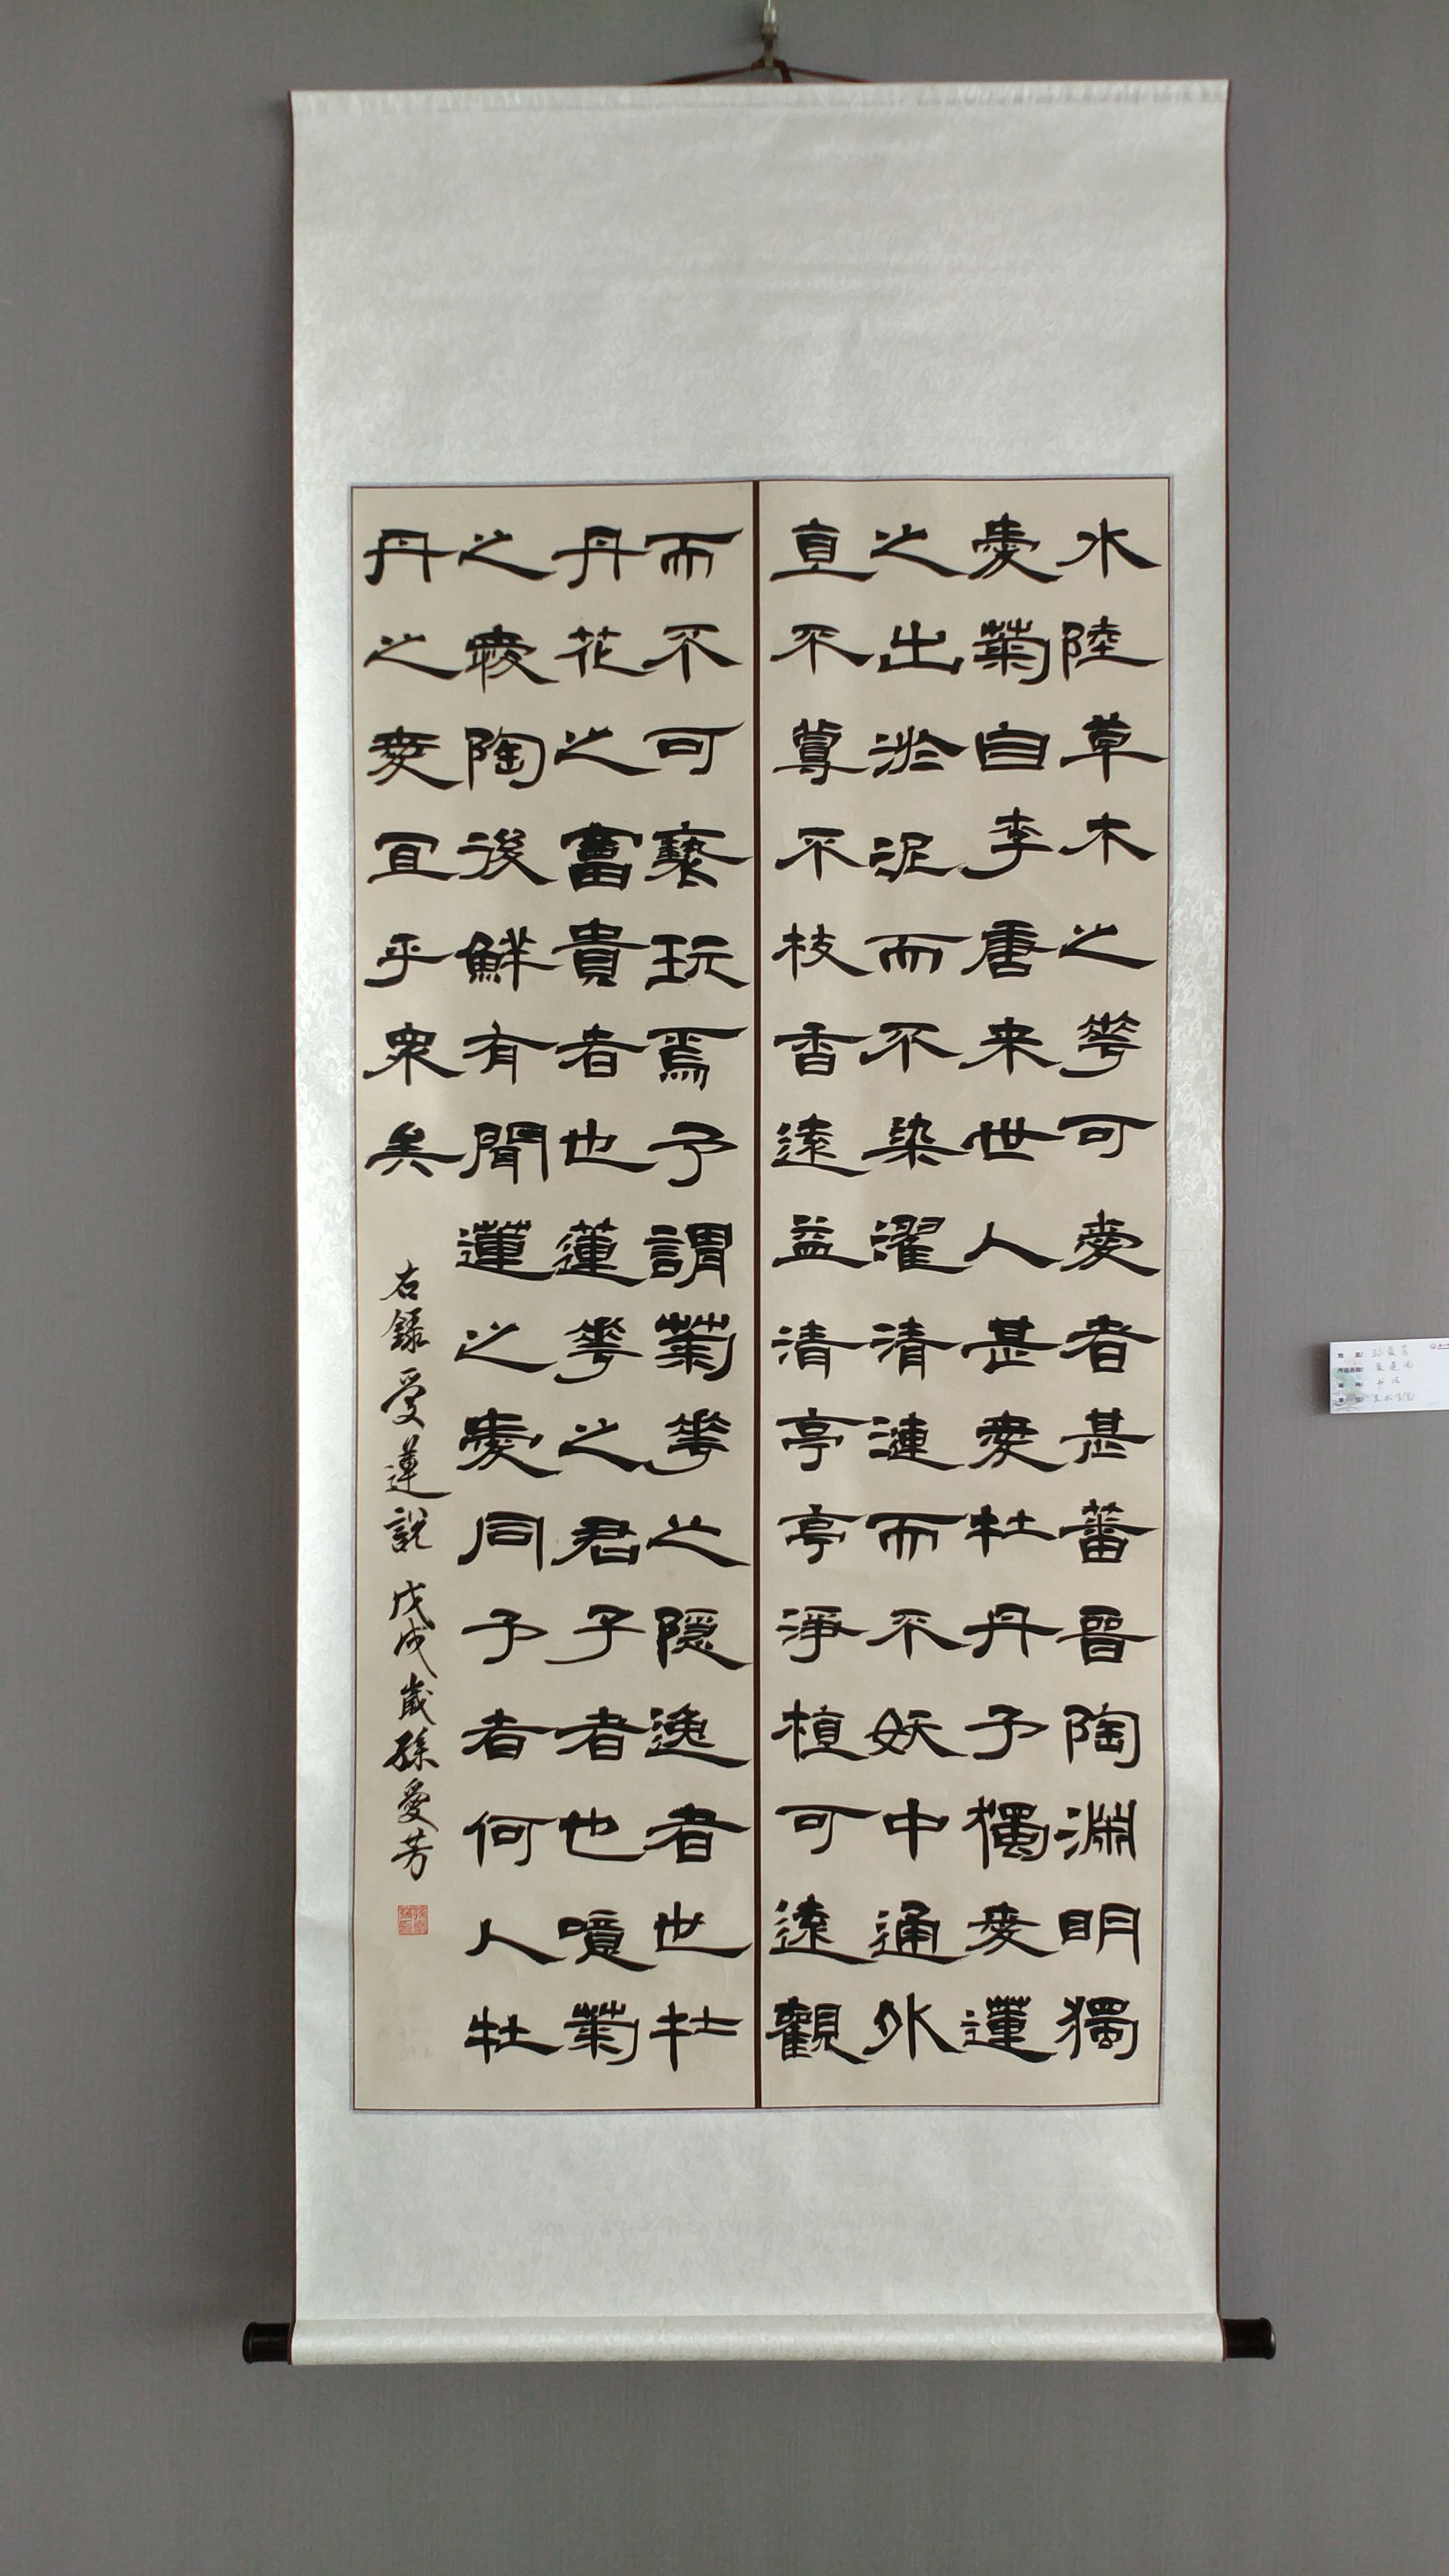 水陸草木之華可愛者甚蕃晉陶淵明獨
愛菊自李唐来世人甚愛牡丹予獨愛蓮
之出淤泥而不染濯清漣而不妖中通外
直不蔓不枝香遠益清亭亭淨植可遠觀
而不可褻玩焉予謂菊華之隱逸者也牡
丹花之富貴者也蓮華之君子者也噫菊
之愛陶後鮮有聞蓮之愛同予者何人牡
丹之愛宜乎衆矣
右錄愛蓮說 戊戌歲孫愛芳